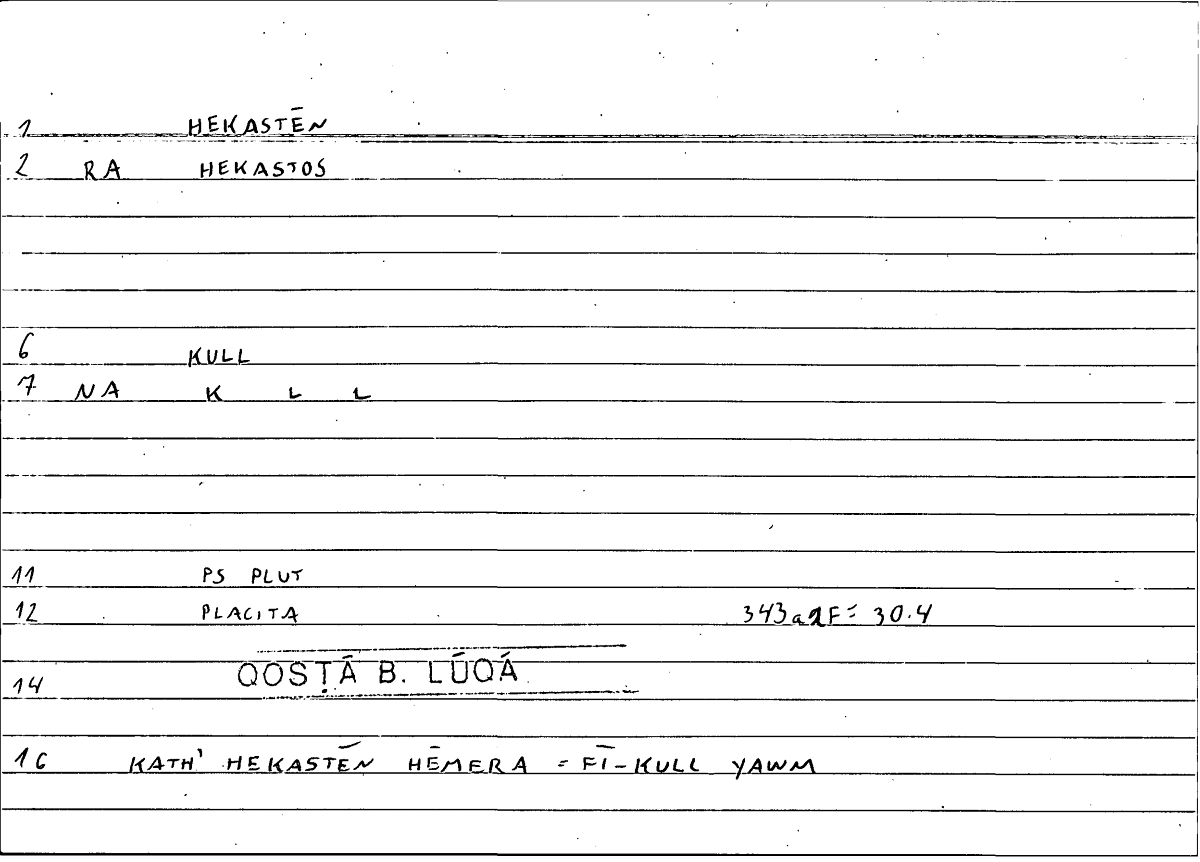 1 HEKASTĒN
2 RA HEKASTOS
6 KULL
7 NA K L L
11 PS PLUT
12 PLACITA 343a2F = 30.4
14 QOSṬĀ B. LŪQĀ
16 KATH' HEKASTĒN HĒMERA = FĪ-KULL YAWM